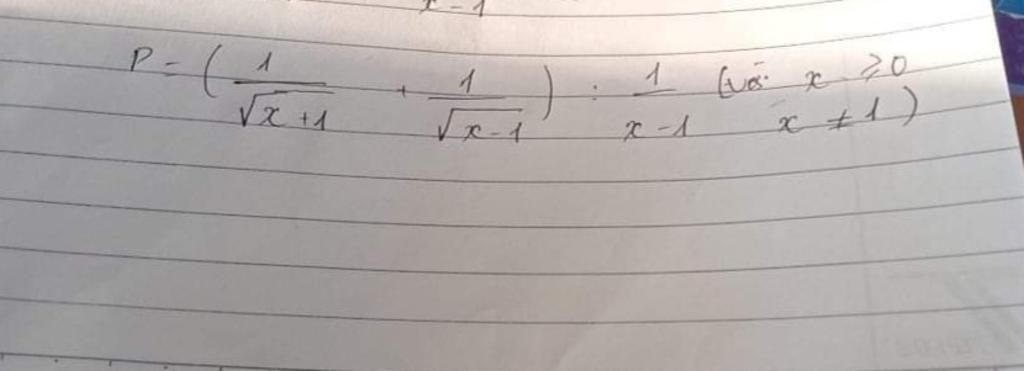 x - 1
P = ( 1/√x+1 + 1/√x-1 ) : 1/x-1 (với x ≥ 0
x ≠ 1)